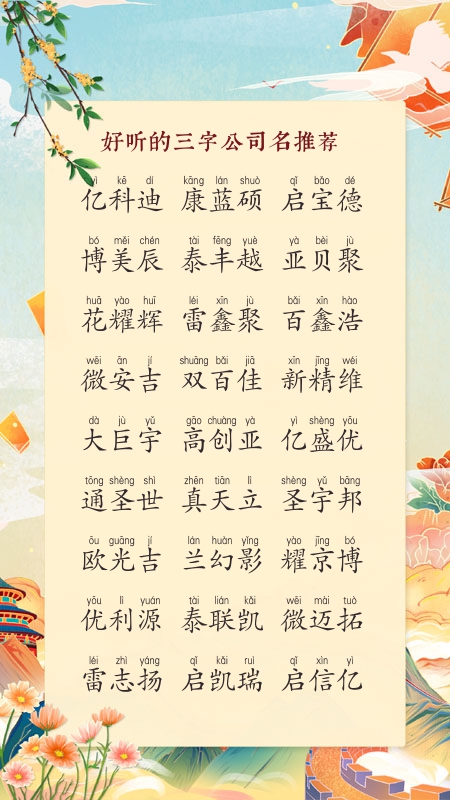 好听的三字公司名推荐
yì kē dí kāng lán shuò qǐ bǎo dé
亿科迪 康蓝硕 启宝德
bó měi chén tài fēng yuè yà bèi jù
博美辰 泰丰越 亚贝聚
huā yào huī léi xīn jù bǎi xīn hào
花耀辉 雷鑫聚 百鑫浩
wēi ān jí shuāng bǎi jiā xīn jīng wéi
微安吉 双百佳 新精维
dà jù yǔ gāo chuàng yà yì shèng yōu
大巨宇 高创亚 亿盛优
tōng shèng shì zhēn tiān lì shèng yǔ bāng
通圣世 真天立 圣宇邦
ōu guāng jí lán huàn yǐng yào jīng bó
欧光吉 兰幻影 耀京博
yōu lì yuán tài lián kǎi wēi mài tuò
优利源 泰联凯 微迈拓
léi zhì yáng qǐ kǎi ruì qǐ xìn yì
雷志扬 启凯瑞 启信亿